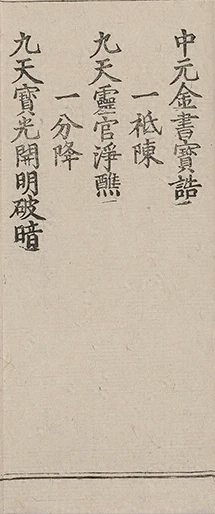 中元金書寶誥
一祗陳
九天靈官淨醮一
一分降
九天寶光開明破暗